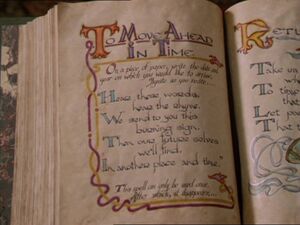 To Move Ahead
In Time
On a piece of paper, write the date and
year on which you would like to arrive.
Ignite as you recite
"Hear these words,
hear the rhyme,
We send to you this
burning sign,
Then our future selves
we'll find,
In another place and time."
This spell can only be used once.
After which, it disappears...
Retu
Take
To
Let
That